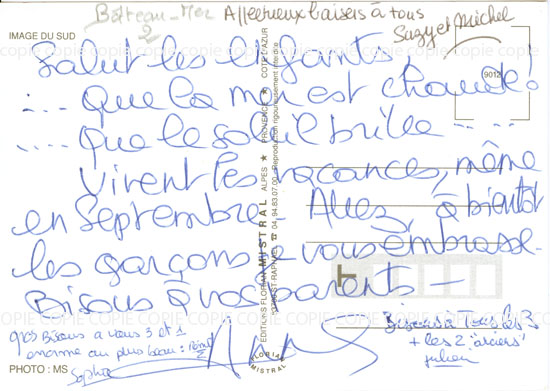 Bateau-Mer
2
Affectueux baisers à tous
Suzy et Michel
IMAGE DU SUD
COPIE COPIE COPIE COPIE COPIE COPIE COPIE COPIE
Salut les enfants,
9012
... Que la mer est chaude!
... Que le soleil brille ....
Vivent les vacances, même
en Septembre - Allez, à bientôt
les garçons je vous embrasse -
Bisous à vos parents -
gros Bisous a vous 3 et 1
enorme au plus beau :
Sophie
Bisous à Tous les 3
+ les 2
julien
PHOTO : MS
EDITIONS FLORIAN MISTRAL ALPES ★ PROVENCE ★ COTE D'AZUR
ST RAPHAEL ☎ 04.94.83.07.00 - Reproduction rigoureusement interdite
FLORIAN
MISTRAL